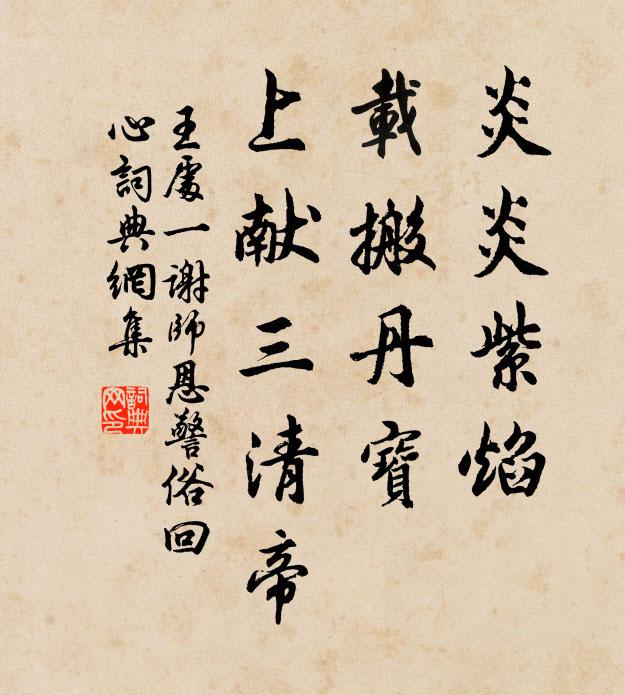 炎炎紫焰
載搬丹寶
上献三清帝
王處一谢師恩警俗回
心詞典網集
詞典
网印